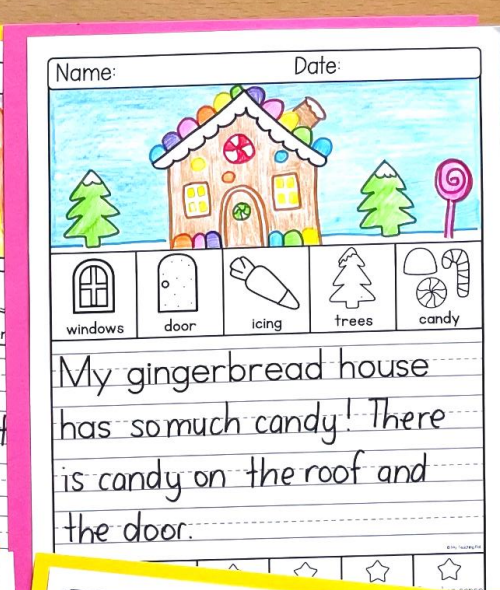 Name: Date:
windows door icing trees candy
My gingerbread house
has so much candy! There
is candy on the roof and
the door.